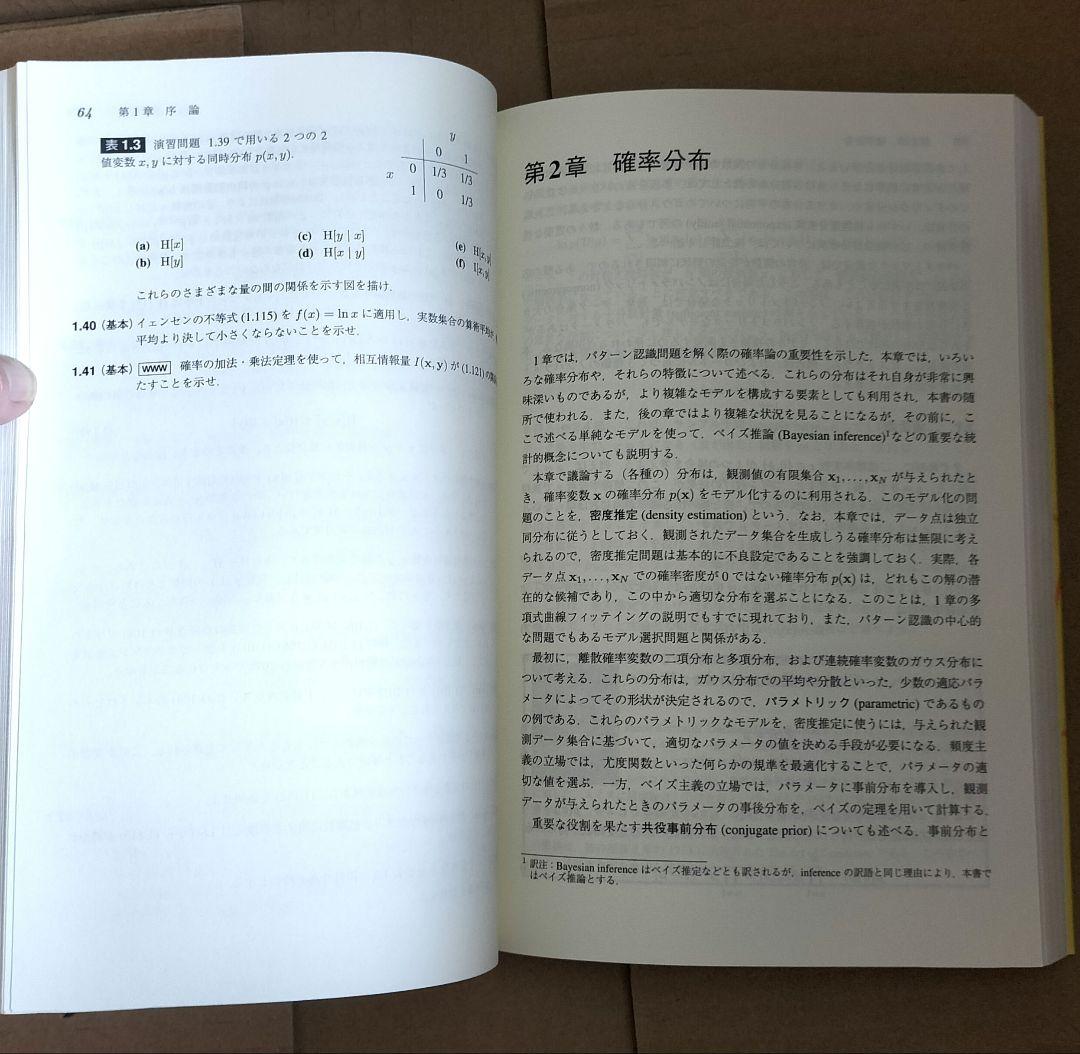 64 第1章 序 論
表1.3 演習問題 1.39 で用いる 2 つの 2
値変数 x, y に対する同時分布 p(x, y).
y
0 1
x 0 1/3 1/3
1 0 1/3
(a) H[x]
(b) H[y]
(c) H[y | x]
(d) H[x | y]
(e) H[x, y]
(f) I[x, y]
これらのさまざまな量の間の関係を示す図を描け.
1.40 (基本) イェンセンの不等式 (1.115) を f(x) = ln x に適用し, 実数集合の算術平均が
平均より決して小さくならないことを示せ.
1.41 (基本) www 確率の加法・乗法定理を使って, 相互情報量 I(x, y) が (1.121) の
たすことを示せ.
第2章 確率分布
1 章では, パターン認識問題を解く際の確率論の重要性を示した. 本章では, いろい
ろな確率分布や, それらの特徴について述べる. これらの分布はそれ自身が非常に興
味深いものであるが, より複雑なモデルを構成する要素としても利用され, 本書の随
所で使われる. また, 後の章ではより複雑な状況を見ることになるが, その前に, こ
こで述べる単純なモデルを使って, ベイズ推論 (Bayesian inference)1などの重要な統
計的概念についても説明する.
本章で議論する (各種の) 分布は, 観測値の有限集合 x1, . . . , xN が与えられたと
き, 確率変数 x の確率分布 p(x) をモデル化するのに利用される. このモデル化の問
題のことを, 密度推定 (density estimation) という. なお, 本章では, データ点は独立
同分布に従うとしておく. 観測されたデータ集合を生成しうる確率分布は無限に考え
られるので, 密度推定問題は基本的に不良設定であることを強調しておく. 実際, 各
データ点 x1, . . . , xN での確率密度が 0 ではない確率分布 p(x) は, どれもこの解の潜
在的な候補であり, この中から適切な分布を選ぶことになる. このことは, 1 章の多
項式曲線フィッテイングの説明でもすでに現れており, また, パターン認識の中心的
な問題でもあるモデル選択問題と関係がある.
最初に, 離散確率変数の二項分布と多項分布, および連続確率変数のガウス分布に
ついて考える. これらの分布は, ガウス分布での平均や分散といった, 少数の適応パラ
メータによってその形状が決定されるので, パラメトリック (parametric) であるもの
の例である. これらのパラメトリックなモデルを, 密度推定に使うには, 与えられた観
測データ集合に基づいて, 適切なパラメータの値を決める手段が必要になる. 頻度主
義の立場では, 尤度関数といった何らかの規準を最適化することで, パラメータの適
切な値を選ぶ. 一方, ベイズ主義の立場では, パラメータに事前分布を導入し, 観測
データが与えられたときのパラメータの事後分布を, ベイズの定理を用いて計算する.
重要な役割を果たす共役事前分布 (conjugate prior) についても述べる. 事前分布と
1 訳注：Bayesian inference はベイズ推定などとも訳されるが, inference の訳語と同じ理由により, 本書で
はベイズ推論とする.